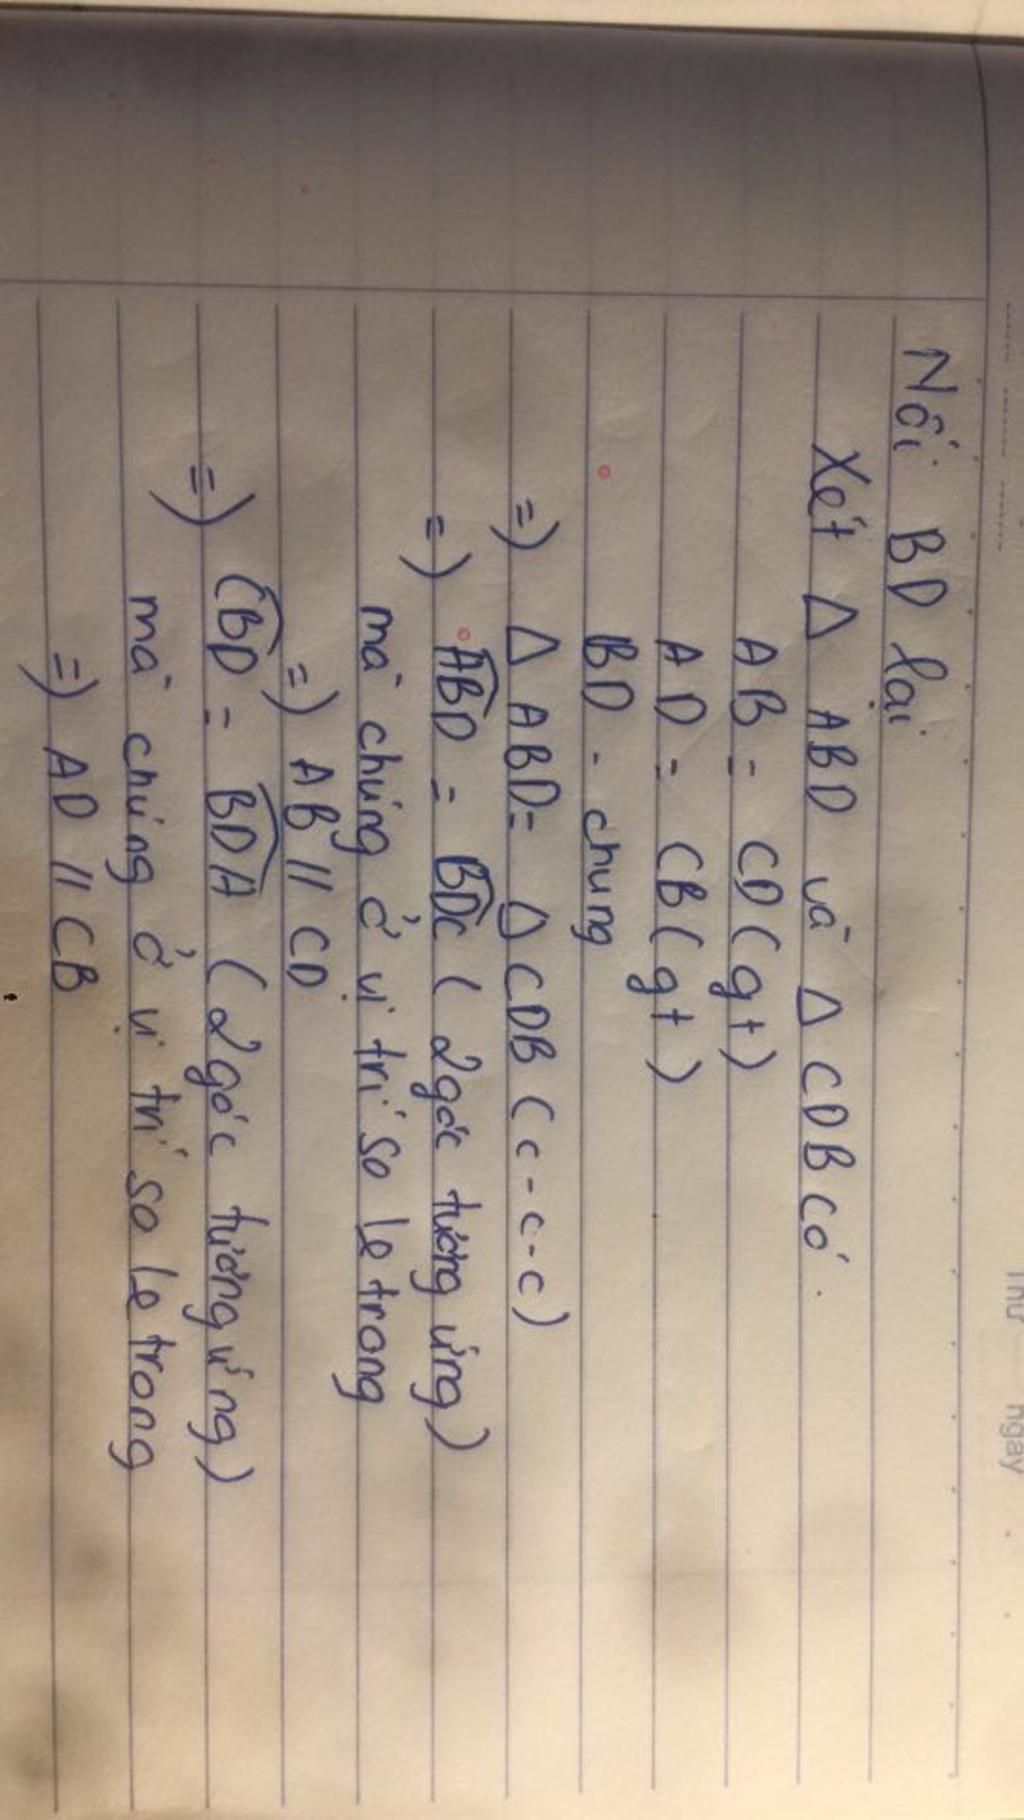 Thứ ngày
Nối BD lại
Xét Δ ABD và Δ CDB có.
AB = CD (gt)
AD = CB (gt)
BD - chung
=) Δ ABD = Δ CDB (c-c-c)
=) ABD = BDC ( 2 góc tương ứng )
mà chúng ở vị trí so le trong
=) AB // CD
=) CBD = BDA ( 2 góc tương ứng )
mà chúng ở vị trí so le trong
=) AD // CB